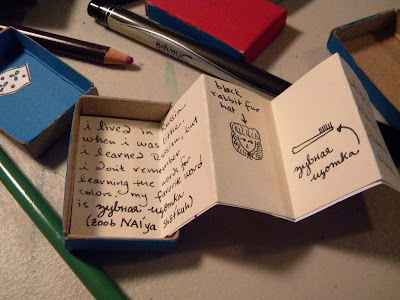 i lived in
when i was little.
i learned Russian, but
i don't remember
learning the word for
colors. my favorite word
is зубная щотка
(zoob NAIya
black
rabbit fur
hat
зубная
щотка